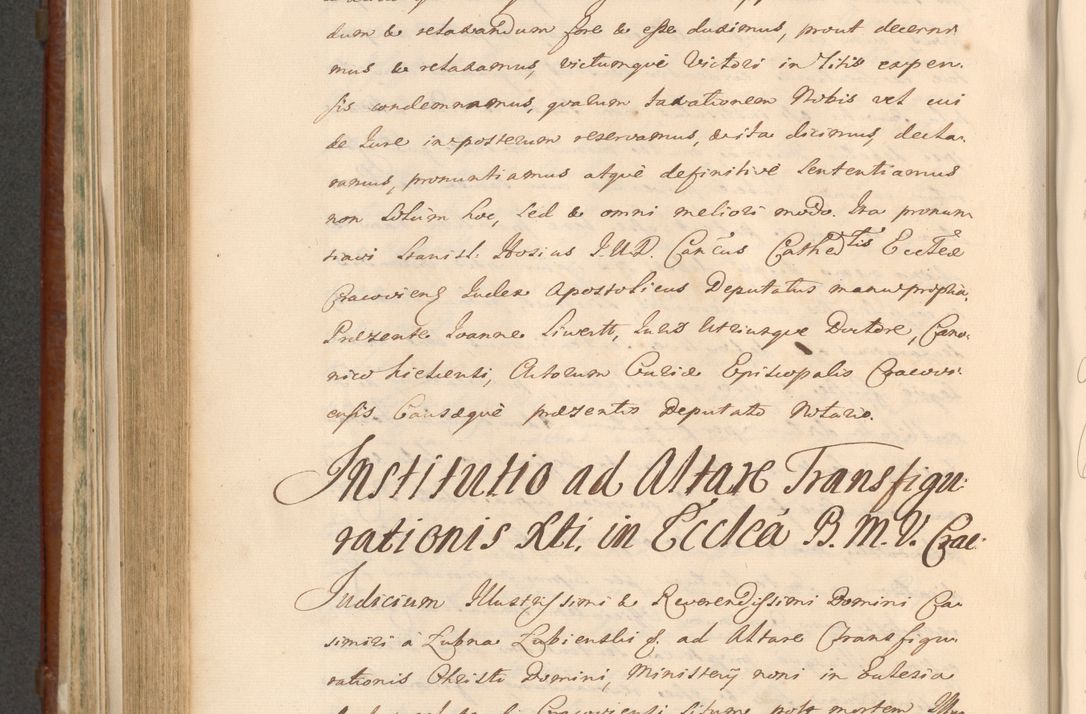 dum & relaxandum fore & esse duximus, prout decerni
mus & relaxamus, victumqué Victori in Litis expen-
sis condemnamus, quarum taxationem Nobis vel cui
de Jure in posterum reservamus, & ita dicimus, decla-
ramus, pronuntiamus atqué definitivé Sententiamus
non solùm hoc, sed & omni meliori modo. Ita pronun
tiavi Stanisl: Hosius J.U.D. Canc̃us Cathed̃tis Eccl̃ex
Cracovien̄ Judex Apostolicus Deputatus manu propria.
Præsente Joanne Siwertt, Juris Utriusque Doctore, Cano-
nico Kielcensi, Actorum Curiæ Episcopalis Cracovi-
ensis Causæquè præsentis Deputato Notario.
Institutio ad Altare Transfigu-
rationis Xti. in Eccleã B. M. V. Crac:
Judicium Illustrissimi & Reverendissimi Domini Ca-
simiri à Łubna Łubienski & ad Altare Transfigu-
rationis Christi Domini, Ministerÿ noni in Ecclesia
Cracoviensi situm post mortem